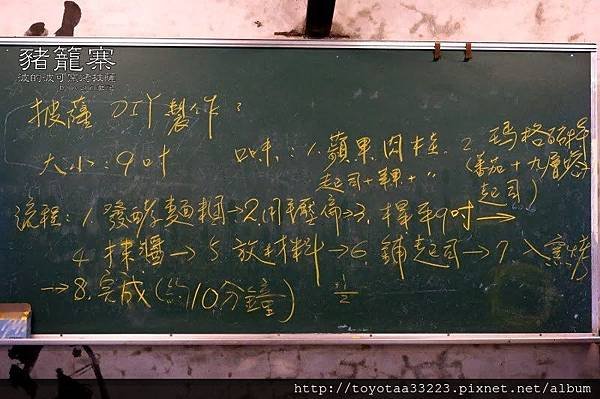 豬籠寨
披薩 DIY 製作:
大小:9吋 口味:1.蘋果肉桂 2.瑪格
起司+苹果+〃
(番茄+九層塔
起司)
流程:1.發酵麵糰→2.用手壓
3.桿平9吋→
4.抹醬→5.放材料→6.鋪起司→7.入窯烤
→8.完成(約10分鐘)
http://toyotaa33223.pixnet.net/album